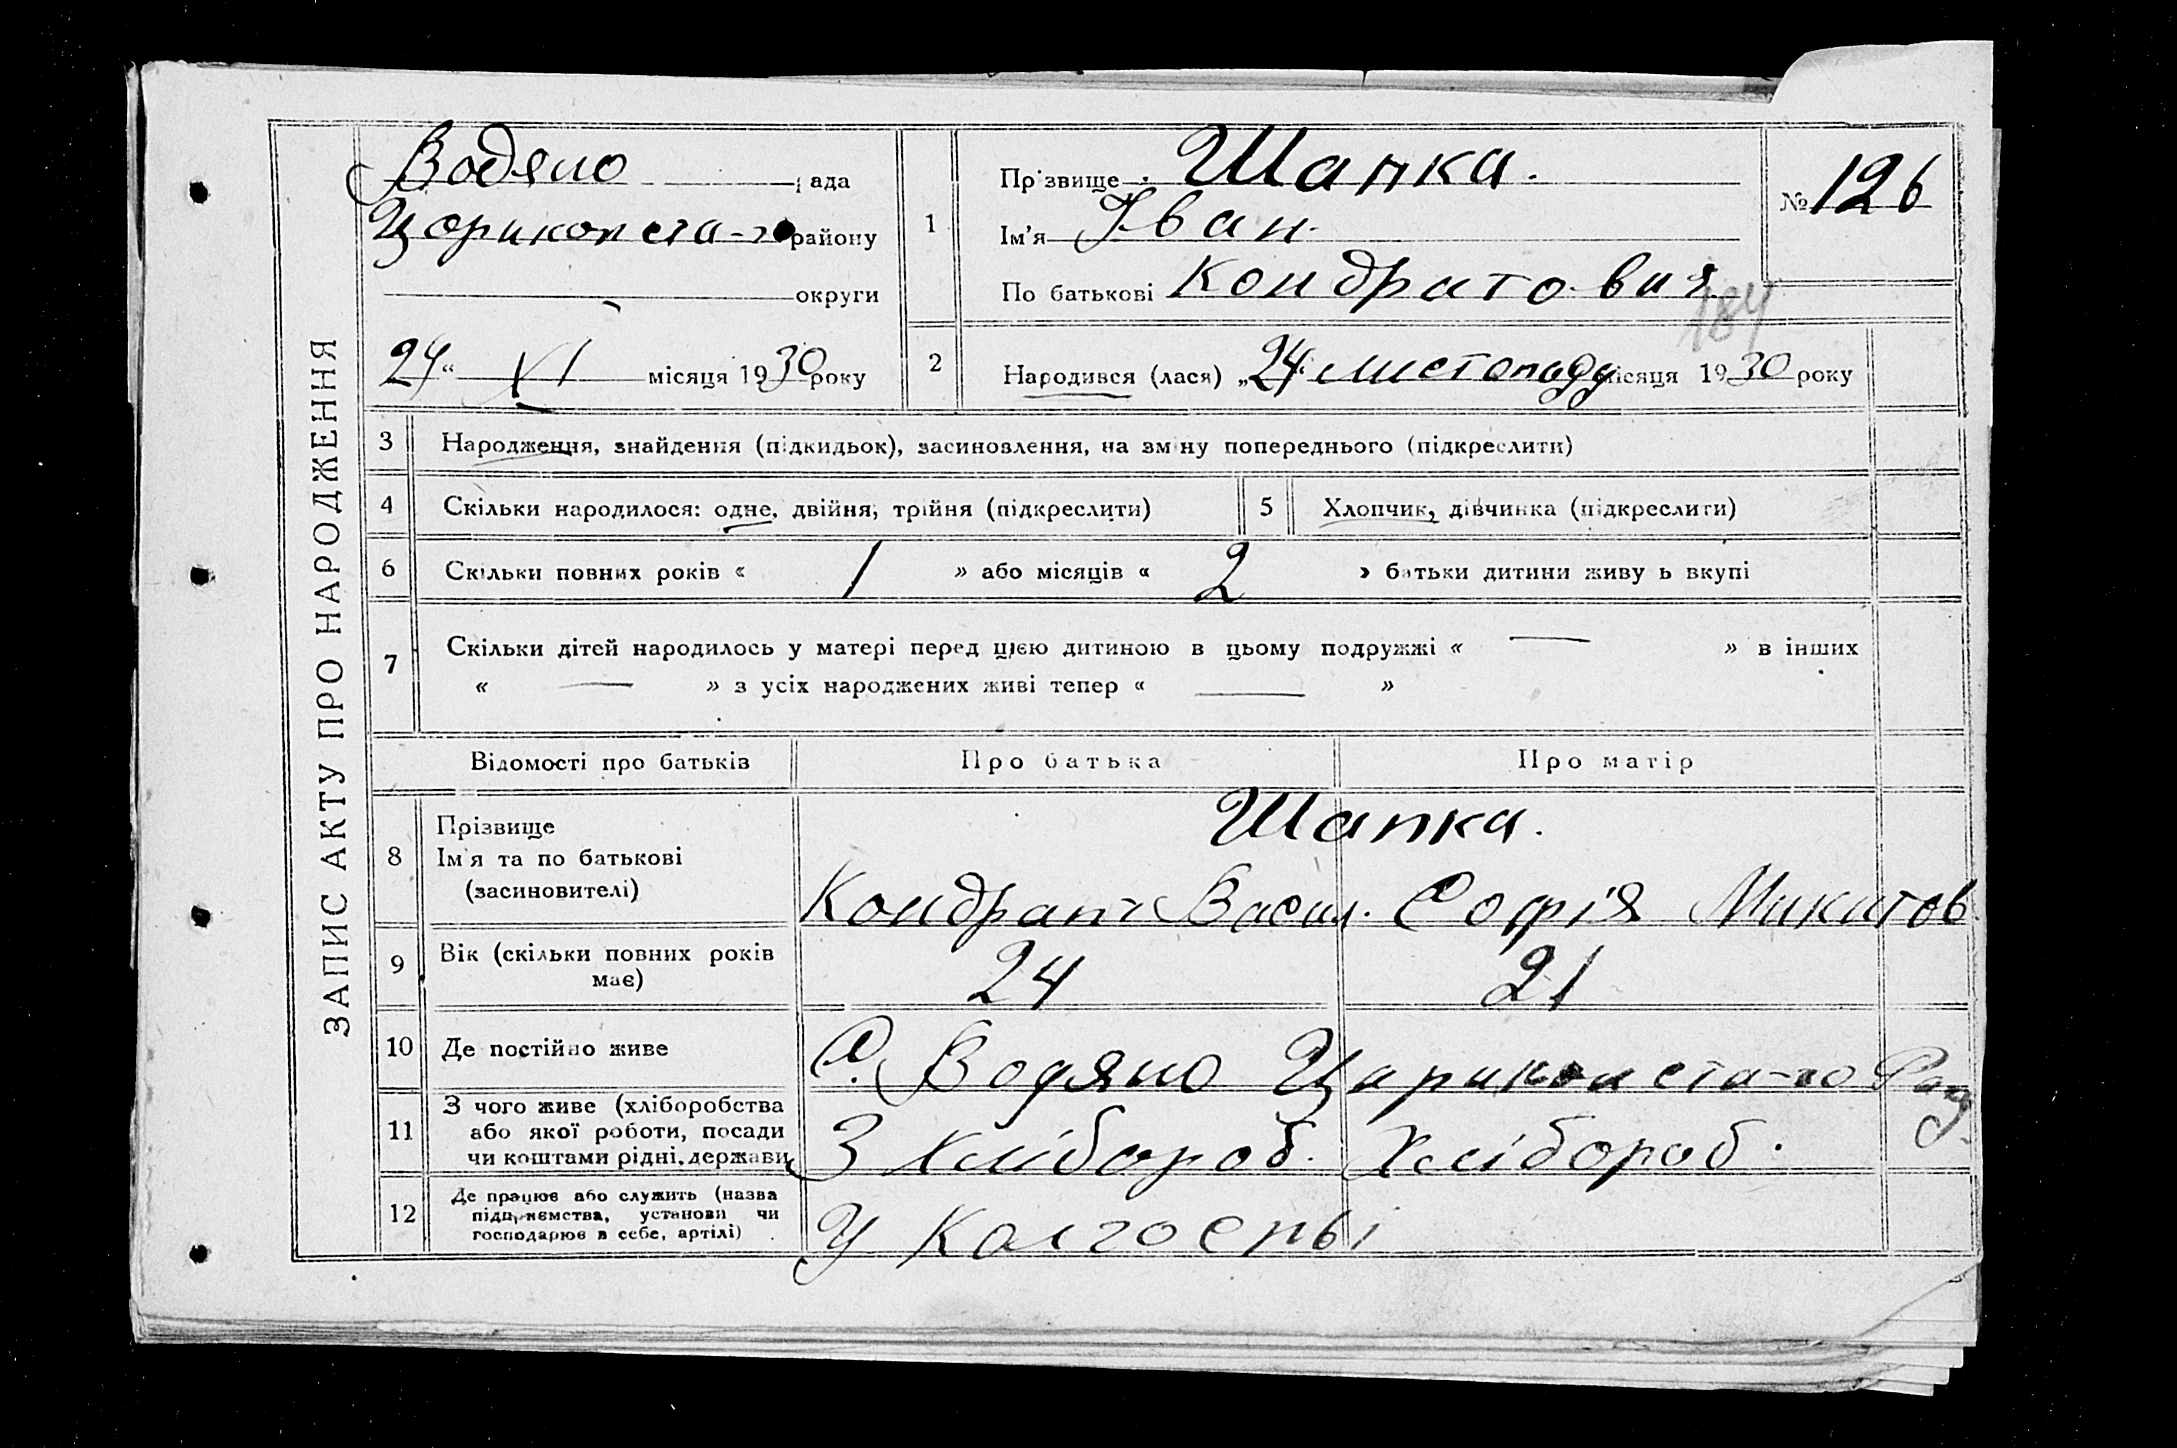 ЗАПИС АКТУ ПРО НАРОДЖЕННЯ
Водяно рада
району
округи
24 " XI місяця 1930 року
1
Прізвище Шапка.
Ім'я Іван.
По батькові Кондратович
№ 126
184
2
Народився (лася) „24" листопаду місяця 1930 року
3 Народження, знайдення (підкидьок), засиновлення, на зміну попереднього (підкреслити)
4 Скільки народилося: одне, двійня, трійня (підкреслити) 5 Хлопчик, дівчинка (підкреслити)
6 Скільки повних років « 1 » або місяців « 2 » батьки дитини живуть вкупі
7 Скільки дітей народилось у матері перед цією дитиною в цьому подружжі « — » в інших
« — » з усіх народжених живі тепер « — »
Відомості про батьків Про батька Про матір
8 Прізвище
Ім'я та по батькові
(засиновителі)
Шапка.
Кондрат Васил. Софія Микитов
9 Вік (скільки повних років
має)
24 21
10 Де постійно живе
С. Водяно
11 З чого живе (хліборобства
або якої роботи, посади
чи коштами рідні, держави
З хлібороб. Хлібороб.
12 Де працює або служить (назва
підприємства, установи чи
господарює в себе, артілі)
У Колгоспі